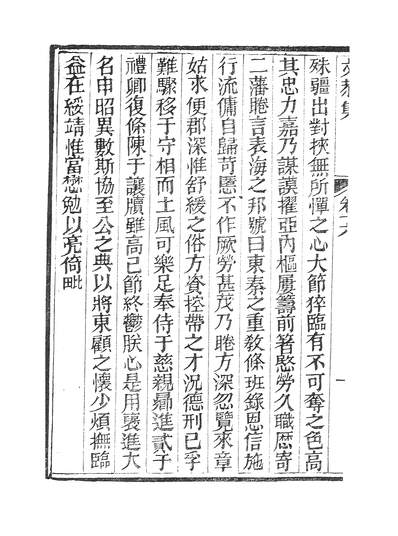 文恭集
卷
殊疆出對挾無所憚之心大節猝臨有不可奪之色高
其忠力嘉乃謀謨擢亞內樞屢籌前箸愍勞久職厯寄
二藩睠言表海之邦號曰東秦之重敎條班錄恩信施
行流傭自歸苛慝不作厥勞甚茂乃睠方深忽覽來章
姑求便郡深惟舒緩之俗方資控帶之才況德刑已孚
難驟移于守相而土風可樂足奉侍于慈親勗進貳于
禮卿復條陳于讓牘雖高已節終鬱朕心是用褒進大
名申昭異數斯協至公之典以將東顧之懷少煩撫臨
益在綏靖惟富懋勉以亮倚毗